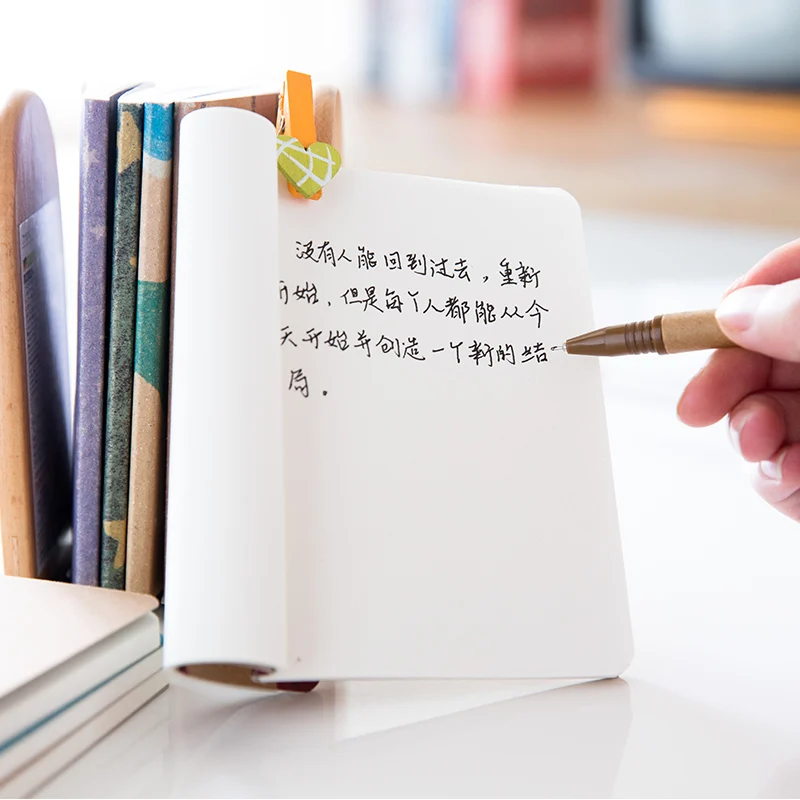 没有人能回到过去，重新
开始，但是每个人都能从今
天开始并创造一个新的结
局。